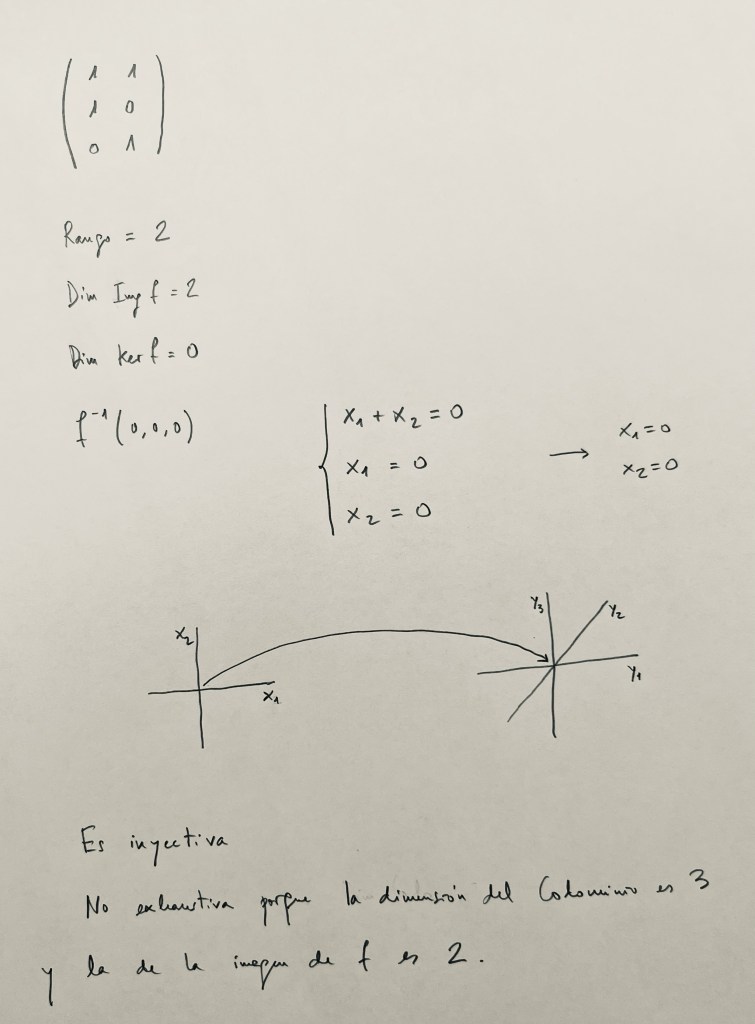 1 1
1 0
0 1
Rango = 2
Dim Img f = 2
Dim Ker f = 0
f⁻¹(0,0,0)
x₁ + x₂ = 0
x₁ = 0
x₂ = 0
→
x₁ = 0
x₂ = 0
x₂
x₁
y₃
y₂
y₁
Es inyectiva
No exhaustiva porque la dimensión del Codominio es 3
y la de la imagen de f es 2.